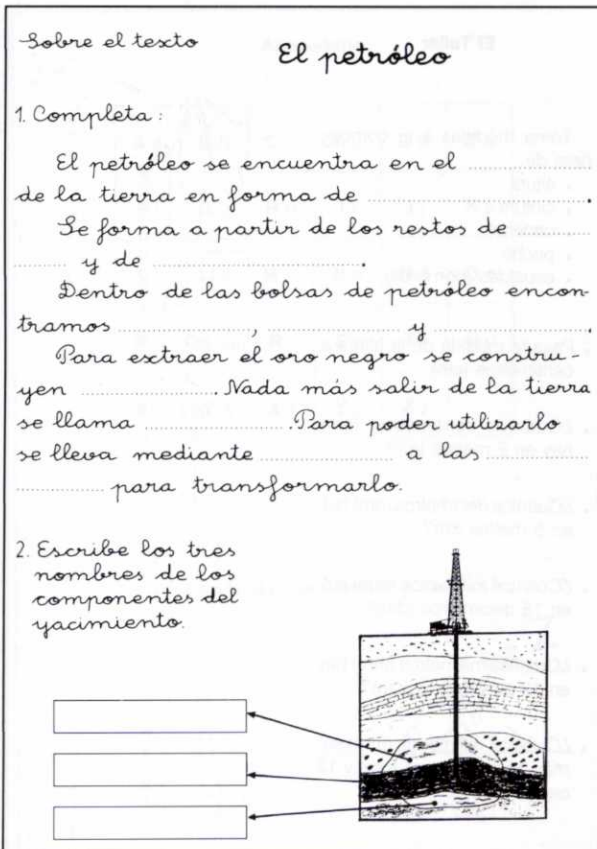 Sobre el texto
El petróleo
1. Completa:
El petróleo se encuentra en el ..............
de la tierra en forma de .......................... .
Se forma a partir de los restos de ........
......... y de ......................... .
Dentro de las bolsas de petróleo encon-
tramos ................. , ................. y ................. .
Para extraer el oro negro se constru-
yen ................ . Nada más salir de la tierra
se llama ................ . Para poder utilizarlo
se lleva mediante ................ a las ............
............ para transformarlo.
2. Escribe los tres
nombres de los
componentes del
yacimiento.